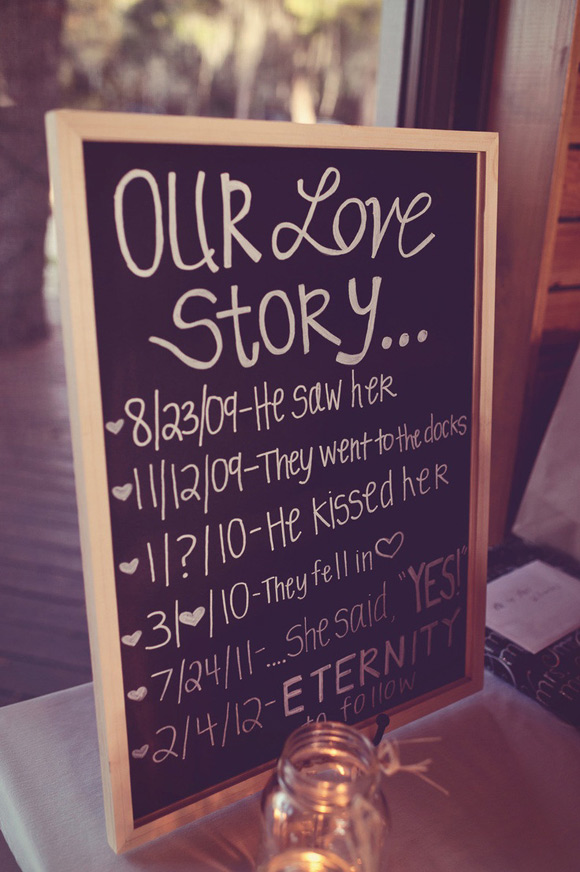 OUR Love
STORY...
♥8/23/09-He saw her
♥11/12/09-They went to the docks
♥1/?/10-He kissed her
♥3/♥/10-They fell in ♡
♥7/24/11-....She said, "YES!"
♥2/4/12-ETERNITY
to follow